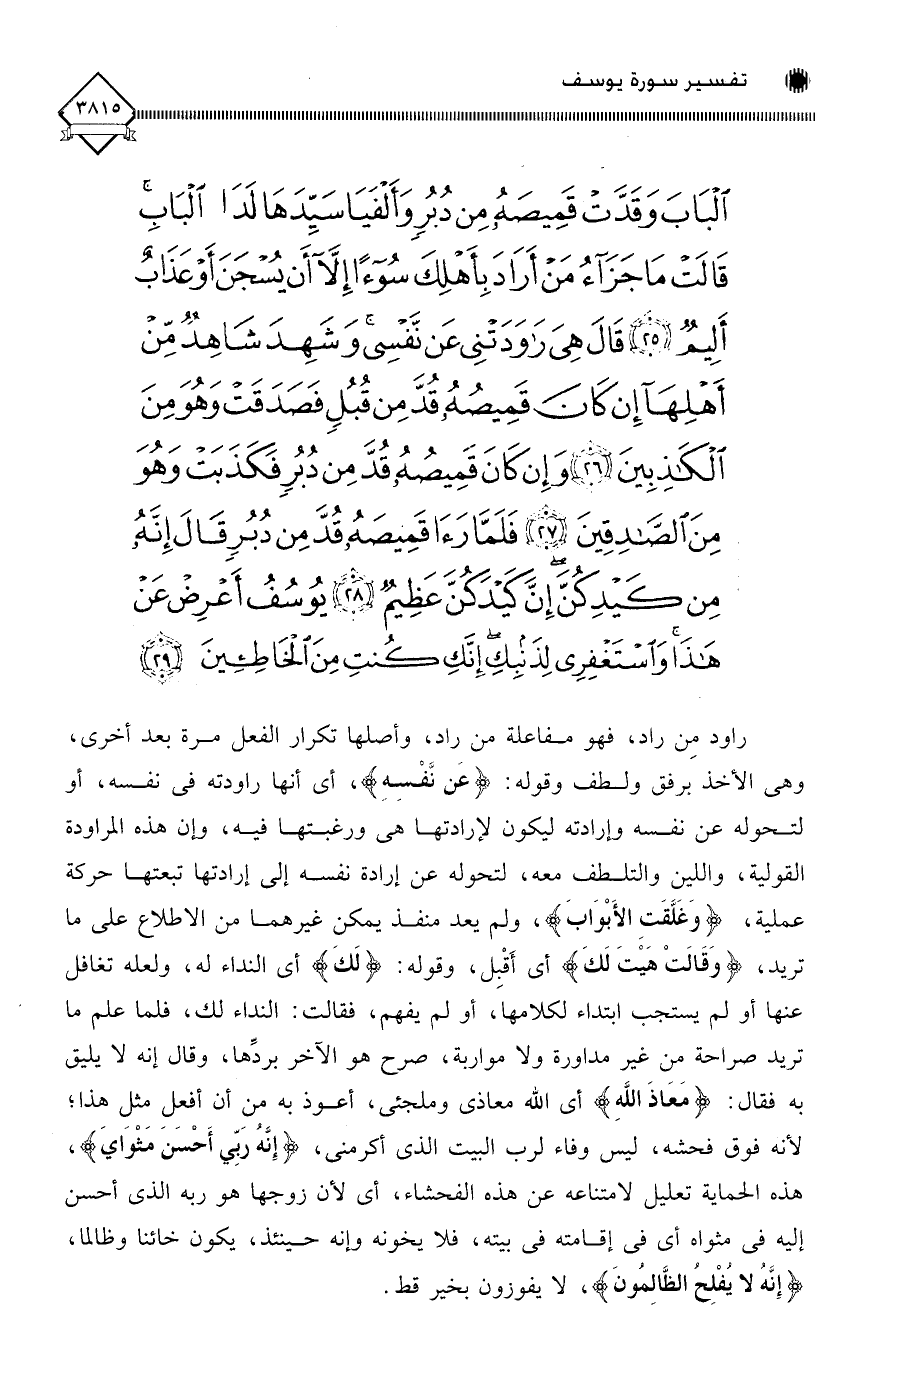 تفسير سورة يوسف
٣٨١٥
ٱلۡبَابَ وَقَدَّتۡ قَمِيصَهُۥ مِن دُبُرٖ وَأَلۡفَيَا سَيِّدَهَا لَدَا ٱلۡبَابِۚ
قَالَتۡ مَا جَزَآءُ مَنۡ أَرَادَ بِأَهۡلِكَ سُوٓءًا إِلَّآ أَن يُسۡجَنَ أَوۡ عَذَابٌ
أَلِيمٞ ٢٥ قَالَ هِيَ رَٰوَدَتۡنِي عَن نَّفۡسِيۚ وَشَهِدَ شَاهِدٞ مِّنۡ
أَهۡلِهَآ إِن كَانَ قَمِيصُهُۥ قُدَّ مِن قُبُلٖ فَصَدَقَتۡ وَهُوَ مِنَ
ٱلۡكَٰذِبِينَ ٢٦ وَإِن كَانَ قَمِيصُهُۥ قُدَّ مِن دُبُرٖ فَكَذَبَتۡ وَهُوَ
مِنَ ٱلصَّٰدِقِينَ ٢٧ فَلَمَّا رَءَا قَمِيصَهُۥ قُدَّ مِن دُبُرٖ قَالَ إِنَّهُۥ
مِن كَيۡدِكُنَّۖ إِنَّ كَيۡدَكُنَّ عَظِيمٞ ٢٨ يُوسُفُ أَعۡرِضۡ عَنۡ
هَٰذَاۚ وَٱسۡتَغۡفِرِي لِذَنۢبِكِۖ إِنَّكِ كُنتِ مِنَ ٱلۡخَاطِـِٔينَ ٢٩
راود من راد، فهو مفاعلة من راد، وأصلها تكرار الفعل مرة بعد أخرى،
وهى الأخذ برفق ولطف وقوله: ﴿عَن نَّفْسه﴾، أى أنها راودته فى نفسه، أو
لتحوله عن نفسه وإرادته ليكون لإرادتها هى ورغبتها فيه، وإن هذه المراودة
القولية، واللين والتلطف معه، لتحوله عن إرادة نفسه إلى إرادتها تبعتها حركة
عملية، ﴿وَغَلَّقَت الأَبْوَابَ﴾، ولم يعد منفذ يمكن غيرهما من الاطلاع على ما
تريد، ﴿وَقَالَتْ هَيْتَ لَكَ﴾ أى أَقْبِل، وقوله: ﴿لَكَ﴾ أى النداء له، ولعله تغافل
عنها أو لم يستجب ابتداء لكلامها، أو لم يفهم، فقالت: النداء لك، فلما علم ما
تريد صراحة من غير مداورة ولا مواربة، صرح هو الآخر بردِّها، وقال إنه لا يليق
به فقال: ﴿مَعَاذَ اللَّه﴾ أى الله معاذى وملجئى، أعوذ به من أن أفعل مثل هذا؛
لأنه فوق فحشه، ليس وفاء لرب البيت الذى أكرمنى، ﴿إِنَّهُ رَبِّي أَحْسَنَ مَثْوَايَ﴾،
هذه الحماية تعليل لامتناعه عن هذه الفحشاء، أى لأن زوجها هو ربه الذى أحسن
إليه فى مثواه أى فى إقامته فى بيته، فلا يخونه وإنه حينئذ، يكون خائنا وظالما،
﴿إِنَّهُ لا يُفْلِحُ الظَّالِمُونَ﴾، لا يفوزون بخير قط.